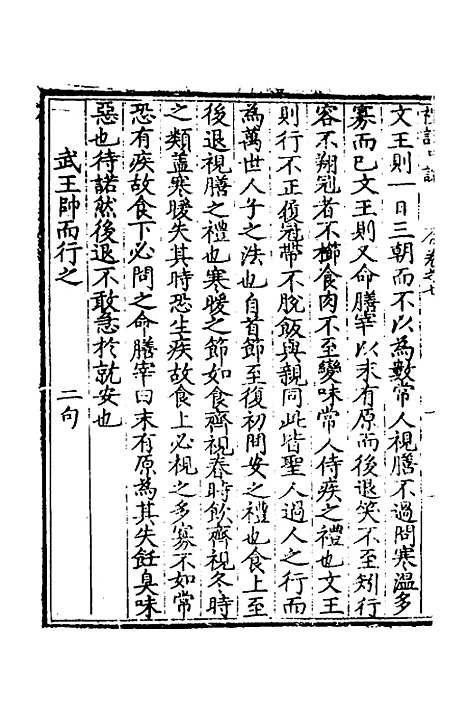 禮記
卷之七
文王則一日三朝而不以為數常人視膳不過問寒溫多
寡而已文王則又命膳宰以末有原而後退笑不至矧行
容不翔冠者不櫛食肉不至變味常人侍疾之禮也文王
則行不正履冠帶不脫飯與親同此皆聖人過人之行而
為萬世人子之法也自首節至復初問安之禮也食上至
後退視膳之禮也寒暖之節如食齊視春時飲齊視冬時
之類蓋寒暖失其時恐生疾故食上必視之多寡不如常
恐有疾故食下必問之命膳宰曰末有原為其失飪臭味
惡也待諾然後退不敢急於就安也
武王帥而行之　二句